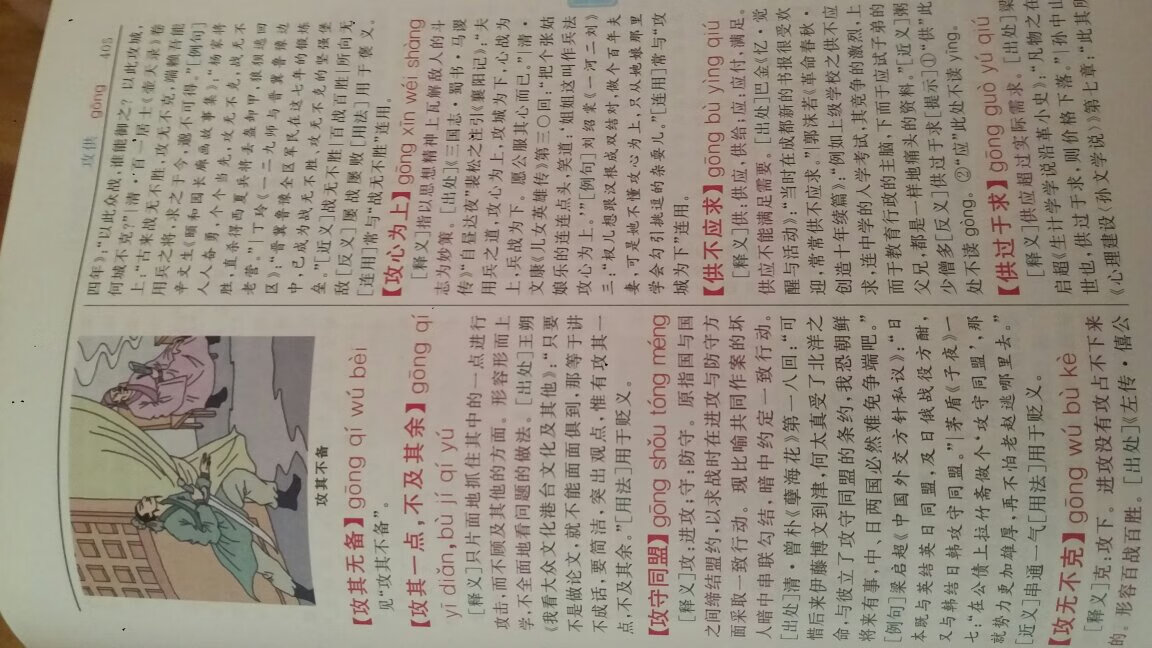 攻供 gōng 405
攻其不备
【攻其无备】gōng qí wú bèi
见“攻其不备”。
【攻其一点，不及其余】gōng qí
yī diǎn, bù jí qí yú
[释义]只片面地抓住其中的一点进行
攻击，而不顾及其他的方面。形容形而上
学，不全面地看问题的做法。[出处]王朔
《我看大众文化港台文化及其他》：“只要
不是做论文，就不能面面俱到，那等于讲
不成话，要简洁，突出观点，惟有攻其一
点，不及其余。”[用法]用于贬义。
【攻守同盟】gōng shǒu tóng méng
[释义]攻：进攻；守：防守。原指国与国
之间缔结盟约，以求战时在进攻与防守方
面采取一致行动。现比喻共同作案的坏
人暗中串联勾结，暗中约定一致行动。
[出处]清·曾朴《孽海花》第一八回：“可
惜后来伊藤博文到津，何太真受了北洋之
命，与彼立了攻守同盟的条约，我恐朝鲜
将来有事，中、日两国必然难免争端吧。”
[例句]梁启超《中国外交方针私议》：“日
本既与英结英日同盟，及日俄战役方酣，
又与韩结日韩攻守同盟。”|茅盾《子夜》一
七：“在公债上拉竹斋做个‘攻守同盟’，那
就势力更加雄厚，再不怕老赵逃哪里去。”
[近义]串通一气[用法]用于贬义。
【攻无不克】gōng wú bù kè
[释义]克：攻下。进攻没有攻占不下来
的。形容百战百胜。[出处]《左传·僖公
四年》：“以此众战，谁能御之？以此攻城，
何城不克？”|清·百一居士《壶天录》卷
上：“古来战无不胜，攻无不克，端赖吾能
用兵之将，求之于今，邈不可得。”[例句]
辛文生《颐和园长廊画故事集》：“杨家将
人人奋勇，个个当先，攻无不克，战无不
胜，直杀得西夏兵将丢盔卸甲，狼狈逃回
老营。”|丁玲《一二九师与晋冀鲁豫边
区》：“晋冀鲁豫全区军民在这七年的锻炼
中，已成为战无不胜，攻无不克的坚强堡
垒。”[近义]战无不胜|百战百胜|所向无
敌[反义]屡战屡败[用法]用于褒义。
[连用]常与“战无不胜”连用。
【攻心为上】gōng xīn wéi shàng
[释义]指以思想精神上瓦解敌人的斗
志为妙策。[出处]《三国志·蜀书·马谡
传》“自昼达夜”裴松之注引《襄阳记》：“夫
用兵之道，攻心为上，攻城为下，心战为
上，兵战为下。愿公服其心而已。”|清·
文康《儿女英雄传》第三〇回：“把个张姑
娘乐的连连点头，笑道：‘姐姐这叫作兵法
攻心为上。’”[例句]刘绍棠《一河二刘》
三：“权儿想跟汉根成双结对，做个百年夫
妻，可是她不懂攻心为上，只从她娘那里
学会勾引挑逗的杂耍儿。”[连用]常与“攻
城为下”连用。
【供不应求】gōng bù yìng qiú
[释义]供：供应，供给；应：应付，满足。
供应不能满足需要。[出处]巴金《忆·觉
醒与活动》：“当时在成都新的书报很受欢
迎，常常供不应求。”|郭沫若《革命春秋·
创造十年续篇》：“例如上级学校之供不应
求，连中学的人学考试，其竞争的激烈，上
而于教育行政的主脑，下而于应试子弟的
父兄，都是一样地痛头的资料。”[近义]粥
少僧多[反义]供过于求[提示]①“供”此
处不读gòng。②“应”此处不读yīng。
【供过于求】gōng guò yú qiú
[释义]供应超过实际需求。[出处]梁
启超《生计学学说沿革小史》：“凡物之在
世也，供过于求，则价格下落。”|孙中山
《心理建设（孙文学说）》第七章：“此其所